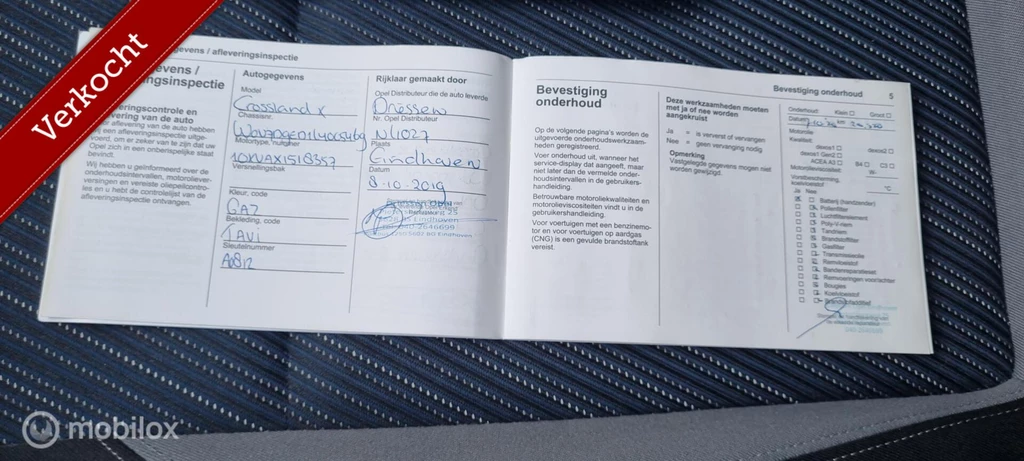 Verkocht
gevens / afleveringsinspectie
evens /
ringsinspectie
veringscontrole en
vering van de auto
aflevering van de auto hebben
wij een afleveringsinspectie uitge-
voerd, om er zeker van te zijn dat uw
Opel zich in een onberispelijke staat
bevindt.
Wij hebben u geïnformeerd over de
onderhoudsintervallen, motoroliever-
versingen en vereiste oliepeilcontro-
les en u hebt de controlelijst van de
afleveringsinspectie ontvangen.
Autogegevens
Model
Crossland x
Chassisnr.
Motortype,
Versnellingsbak
Kleur, code
GAZ
Bekleding, code
TAVI
Sleutelnummer
A0812
Rijklaar gemaakt door
Opel Distributeur die de auto leverde
Driessen
Nr. Opel Distributeur
NL1027
Plaats
Eindhoven
Datum
8-10-2019
Bevestiging
onderhoud
Op de volgende pagina's worden de
uitgevoerde onderhoudswerkzaam-
heden geregistreerd.
Voer onderhoud uit, wanneer het
service-display dat aangeeft, maar
niet later dan de vermelde onder-
houdsintervallen in de gebruikers-
handleiding.
Betrouwbare motoroliekwaliteiten en
motorolieviscositeiten vindt u in de
gebruikershandleiding.
Voor voertuigen met een benzinemo-
tor en voor voertuigen op aardgas
(CNG) is een gevulde brandstoftank
vereist.
Bevestiging onderhoud 5
Deze werkzaamheden moeten
met ja of nee worden
aangekruist
Ja = is ververst of vervangen
Nee = geen vervanging nodig
Opmerking
Vastgelegde gegevens mogen niet
worden gewijzigd.
Onderhoud: Klein Groot
Datum
Motorolie
Kwaliteit:
dexos1 dexos2
dexos1 Gen2
ACEA A3 B4 C3
Motorolieviscositeit W-
Vorstbescherming,
koelvloeistof °C
Ja Nee
Batterij (handzender)
Pollenfilter
Luchtfilterelement
Poly-V-riem
Tandriem
Brandstoffilter
Gasfilter
Transmissieolie
Remvloeistof
Bandenreparatieset
Remvoeringen voor/achter
Bougies
Koelvloeistof
mobilox